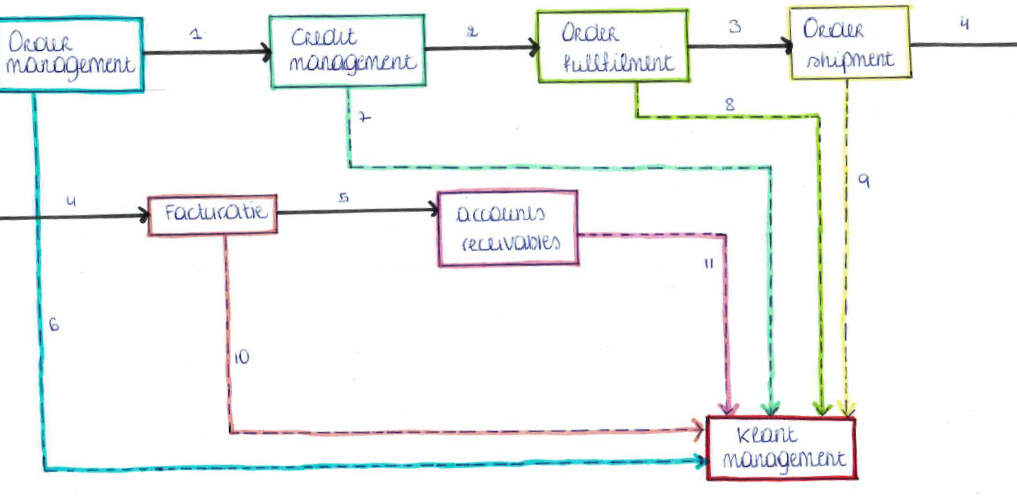 Order
management
1
Credit
management
2
Order
fullfilment
3
Order
shipment
4
7
8
9
4
Facturatie
5
accounts
receivables
11
6
10
Klant
management